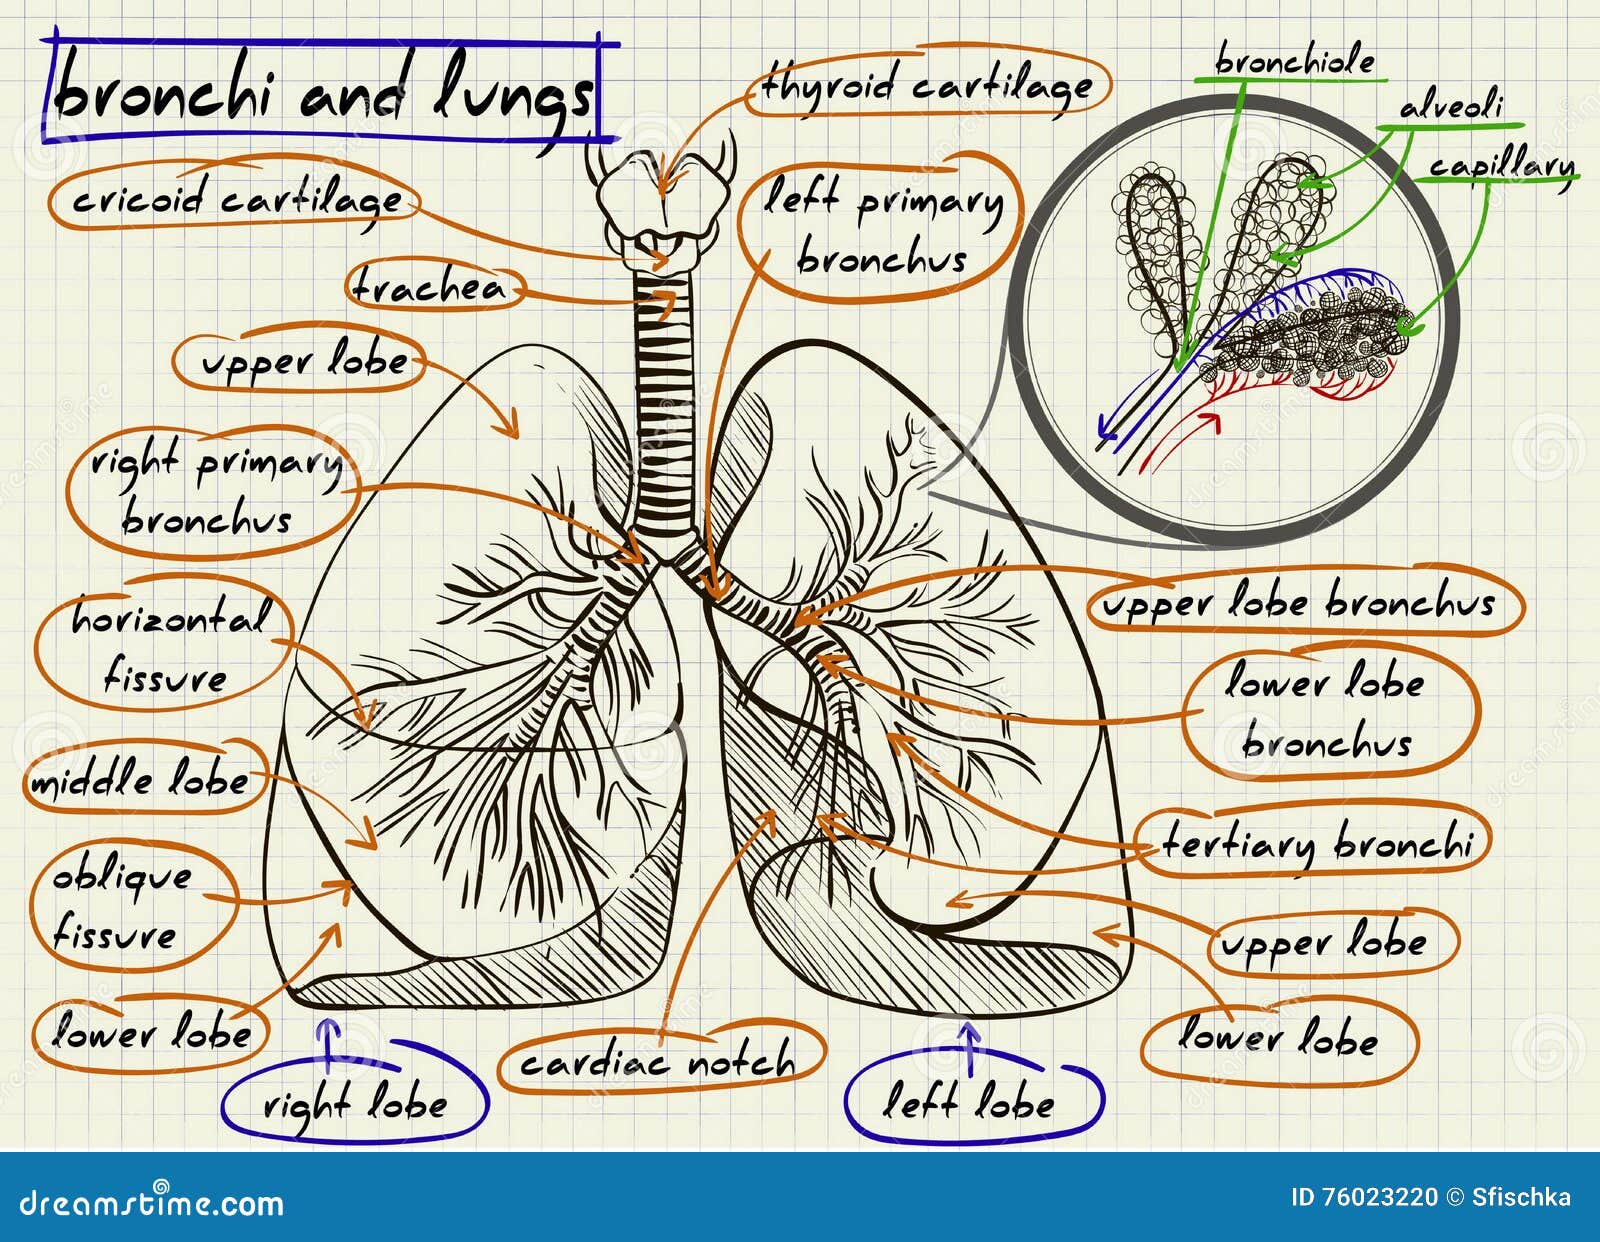 bronchi and lungs
thyroid cartilage
bronchiole
alveoli
capillary
cricoid cartilage
left primary
bronchus
trachea
upper lobe
right primary
bronchus
horizontal
fissure
upper lobe bronchus
lower lobe
bronchus
middle lobe
tertiary bronchi
oblique
fissure
upper lobe
lower lobe
lower lobe
cardiac notch
right lobe
left lobe
dreamstime.com
ID 76023220 © Sfischka